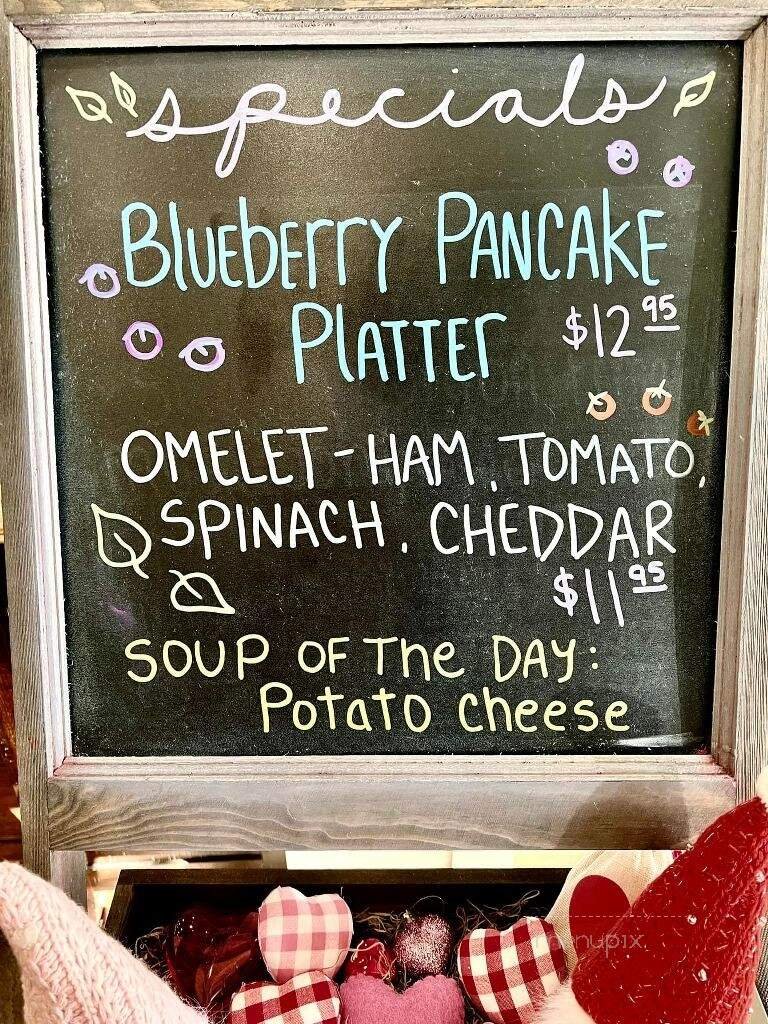 specials
BLUEBERRY PANCAKE
PLATTER $12 95
OMELET - HAM, TOMATO,
SPINACH, CHEDDAR
$11 95
SOUP OF THE DAY:
Potato cheese
menupix